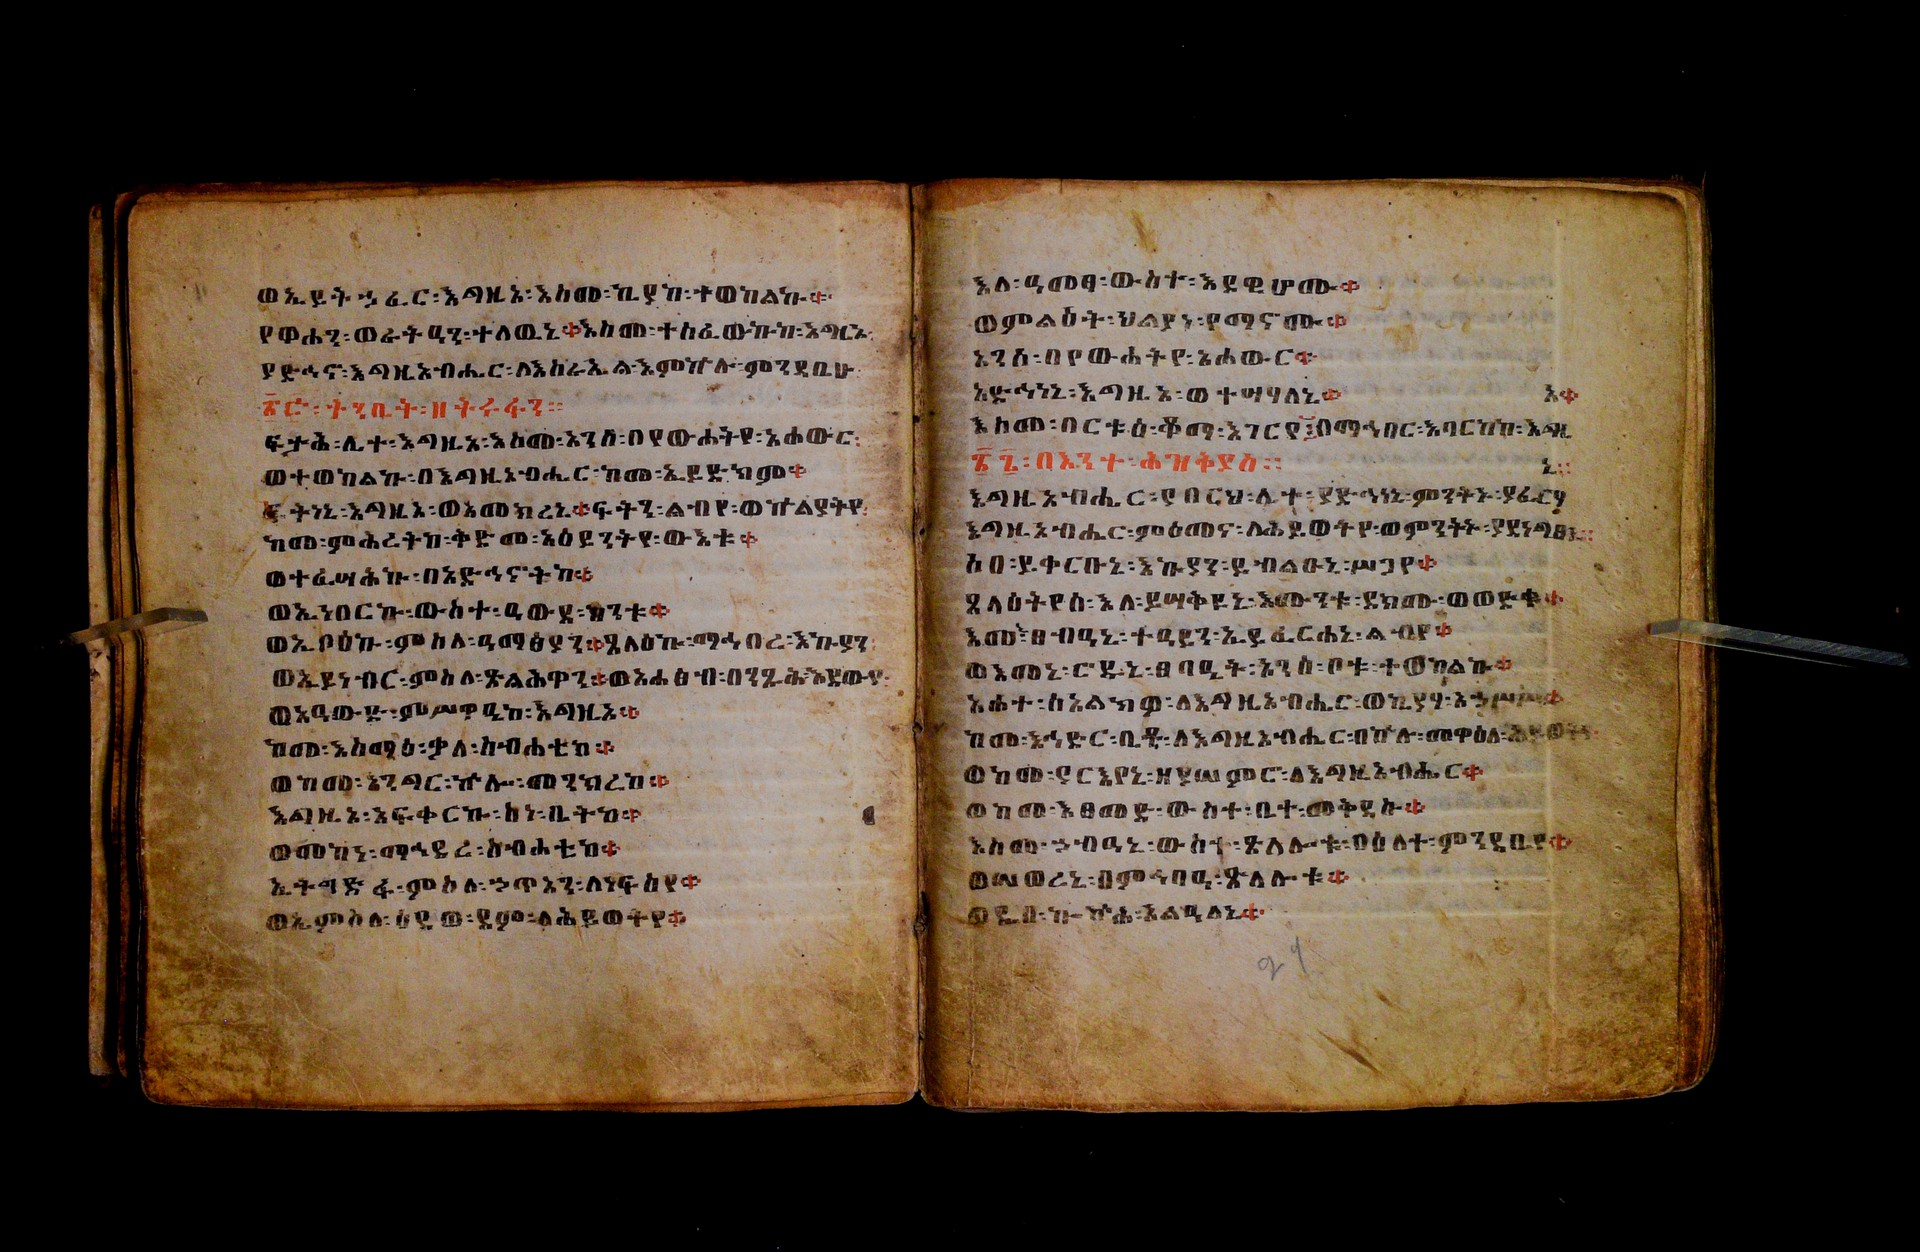 ወኢይትኃፈር፡እግዚኦ፡እስመ፡ኪያከ፡ተወከልኩ።
የዋሐን፡ወራትዓን፡ተለዉኒ።እስመ፡ተሰፈውኩከ፡እግዚኦ፡
ያድኅኖ፡እግዚአብሔር፡ለእስራኤል፡እምኵሉ፡ምንዳቤሁ
ትንቢት፡ዘትሩፋን።
ፍታሕ፡ሊተ፡እግዚኦ፡እስመ፡አንሰ፡በየውሐትየ፡አሐውር፡
ወተወከልኩ፡በእግዚአብሔር፡ከመ፡ኢይድክም።
ፍትነኒ፡እግዚኦ፡ወአመክረኒ።ፍትን፡ልብየ፡ወኵልያትየ፡
ከመ፡ምሕረትከ፡ቅድመ፡አዕይንትየ፡ውእቱ።
ወተፈሣሕኩ፡በአድኅኖትከ።
ወኢነበርኩ፡ውስተ፡ዓውደ፡ከንቱ።
ወኢቦዕኩ፡ምስለ፡ዓማፅያን።ጸላዕኩ፡ማኅበረ፡እኩያን፡
ወኢይነብር፡ምስለ፡ጽልሕዋን።ወአሐፅብ፡በንጹሕ፡እደውየ፡
ወአዓውድ፡ምሥዋዒከ፡እግዚኦ።
ከመ፡እስማዕ፡ቃለ፡ስብሐቲከ።
ወከመ፡እንግር፡ኵሎ፡መንክረከ።
እግዚኦ፡አፍቀርኩ፡ስነ፡ቤትከ።
ወመከነ፡ማኅደረ፡ስብሐቲከ።
ኢትግድፋ፡ምስለ፡ኃጥአን፡ለነፍስየ።
ወኢምስለ፡ዕደወ፡ደም፡ለሕይወትየ።
እለ፡ዓመፃ፡ውስተ፡እደዊሆሙ።
ወምልዕት፡ህልያነ፡የማኖሙ።
አንሰ፡በየውሐትየ፡አሐውር።
አድኅነኒ፡እግዚኦ፡ወተሣሃለኒ።
እስመ፡በርቱዕ፡ቆማ፡እገርየ፤በማኅበር፡እባርከከ፡እግዚ
ኦ።
፳፮፡በእንተ፡ሕዝቅያስ።
እግዚአብሔር፡ያበርህ፡ሊተ፡ያድኅነኒ፡ምንትኑ፡ያፈርሃ
ኒ።
እግዚአብሔር፡ምዕመና፡ለሕይወትየ፡ወምንትኑ፡ያደነግፀኒ።
ሶበ፡ይቀርቡኒ፡እኩያን፡ይብልዑኒ፡ሥጋየ።
ጸላዕትየሰ፡እለ፡ይሣቅዩኒ፡እሙንቱ፡ደክሙ፡ወወድቁ።
እመ፡ፀብዓኒ፡ተዓይን፡ኢይፈርሐኒ፡ልብየ።
ወእመኒ፡ሮዱኒ፡ፀባዒት፡አንሰ፡ቦቱ፡ተወከልኩ።
አሐተ፡ሰአልክዎ፡ለእግዚአብሔር፡ወኪያሃ፡አኃሥሥ።
ከመ፡እኅድር፡ቤቶ፡ለእግዚአብሔር፡በኵሉ፡መዋዕለ፡ሕይወትየ።
ወከመ፡ያርእየኒ፡ዘያሠምሮ፡ለእግዚአብሔር።
ወከመ፡እፀመድ፡ውስተ፡ቤተ፡መቅደሱ።
እስመ፡ኃብዓኒ፡ውስተ፡ጽላሎቱ፡በዕለተ፡ምንዳቤየ።
ወሠወረኒ፡በምኅባዒ፡ጽላሎቱ።
ወዲበ፡ኰኵሕ፡አልዓለኒ።